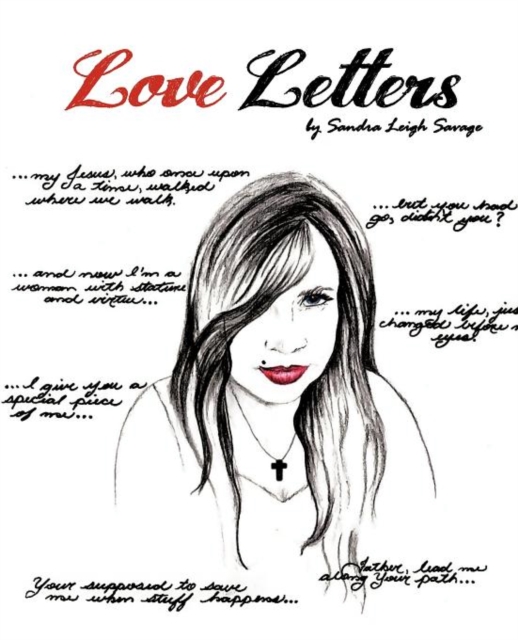 Love Letters
by Sandra Leigh Savage
...my Jesus, who once upon
a time, walked
where we walk.
... but you had
go, didn't you?
... and now I'm a
woman with stature
and virtue...
... my life, jus
changed before m
eyes.
...I give you a
special piece
of me...
Father, lead me
along Your path...
Your supposed to save
me when stuff happens...